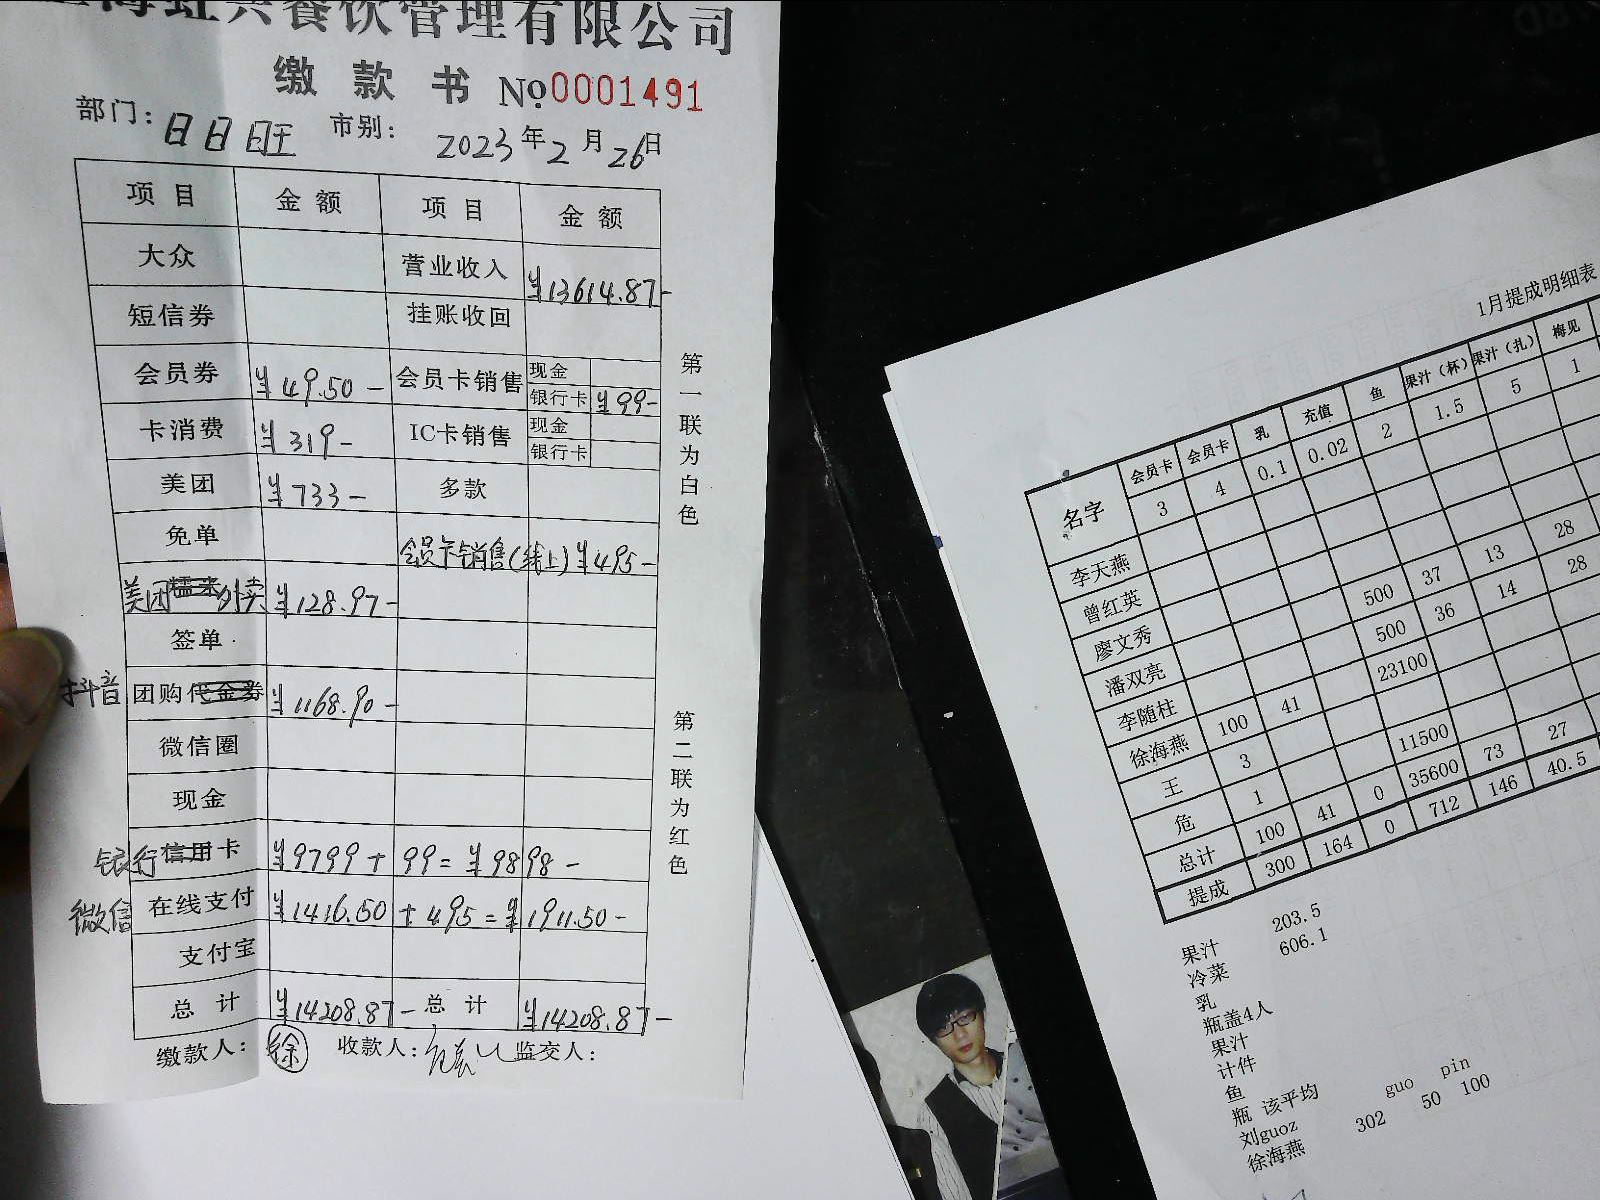 海虹兴餐饮管理有限公司
缴款书 No 0001491
部门: 日日旺 市别: 2023年2月26日
项目 金额 项目 金额
大众 营业收入 ¥13614.87-
短信券 挂账收回
会员券 ¥49.50- 会员卡销售 现金
银行卡 ¥99-
卡消费 ¥319- IC卡销售 现金
银行卡
美团 ¥733- 多款
免单 会员卡销售(线上) ¥495-
美团外卖 ¥128.97-
签单
抖音 团购代金券 ¥1168.90-
微信圈
现金
银行信用卡 ¥9799+99=¥9898-
微信 在线支付 ¥1416.50+495=¥1911.50-
支付宝
总计 ¥14208.87- 总计 ¥14208.87-
缴款人: 徐 收款人: 监交人:
第一联为白色
第二联为红色
1月提成明细表
名字 会员卡 会员卡 乳 充值 鱼 果汁(杯) 果汁(扎) 梅见
3 4 0.1 0.02 2 1.5 5 1
李天燕
曾红英
廖文秀 500 37 13 28
潘双亮 500 36 14 28
李随柱 23100
徐海燕 100 41
王 3 11500
危 1 35600 73 27
总计 100 41 0 712 146 40.5
提成 300 164 0
果汁 203.5
冷菜 606.1
乳
瓶盖4人
果汁
计件
鱼
瓶 该平均 guo pin
刘guoz 302 50 100
徐海燕